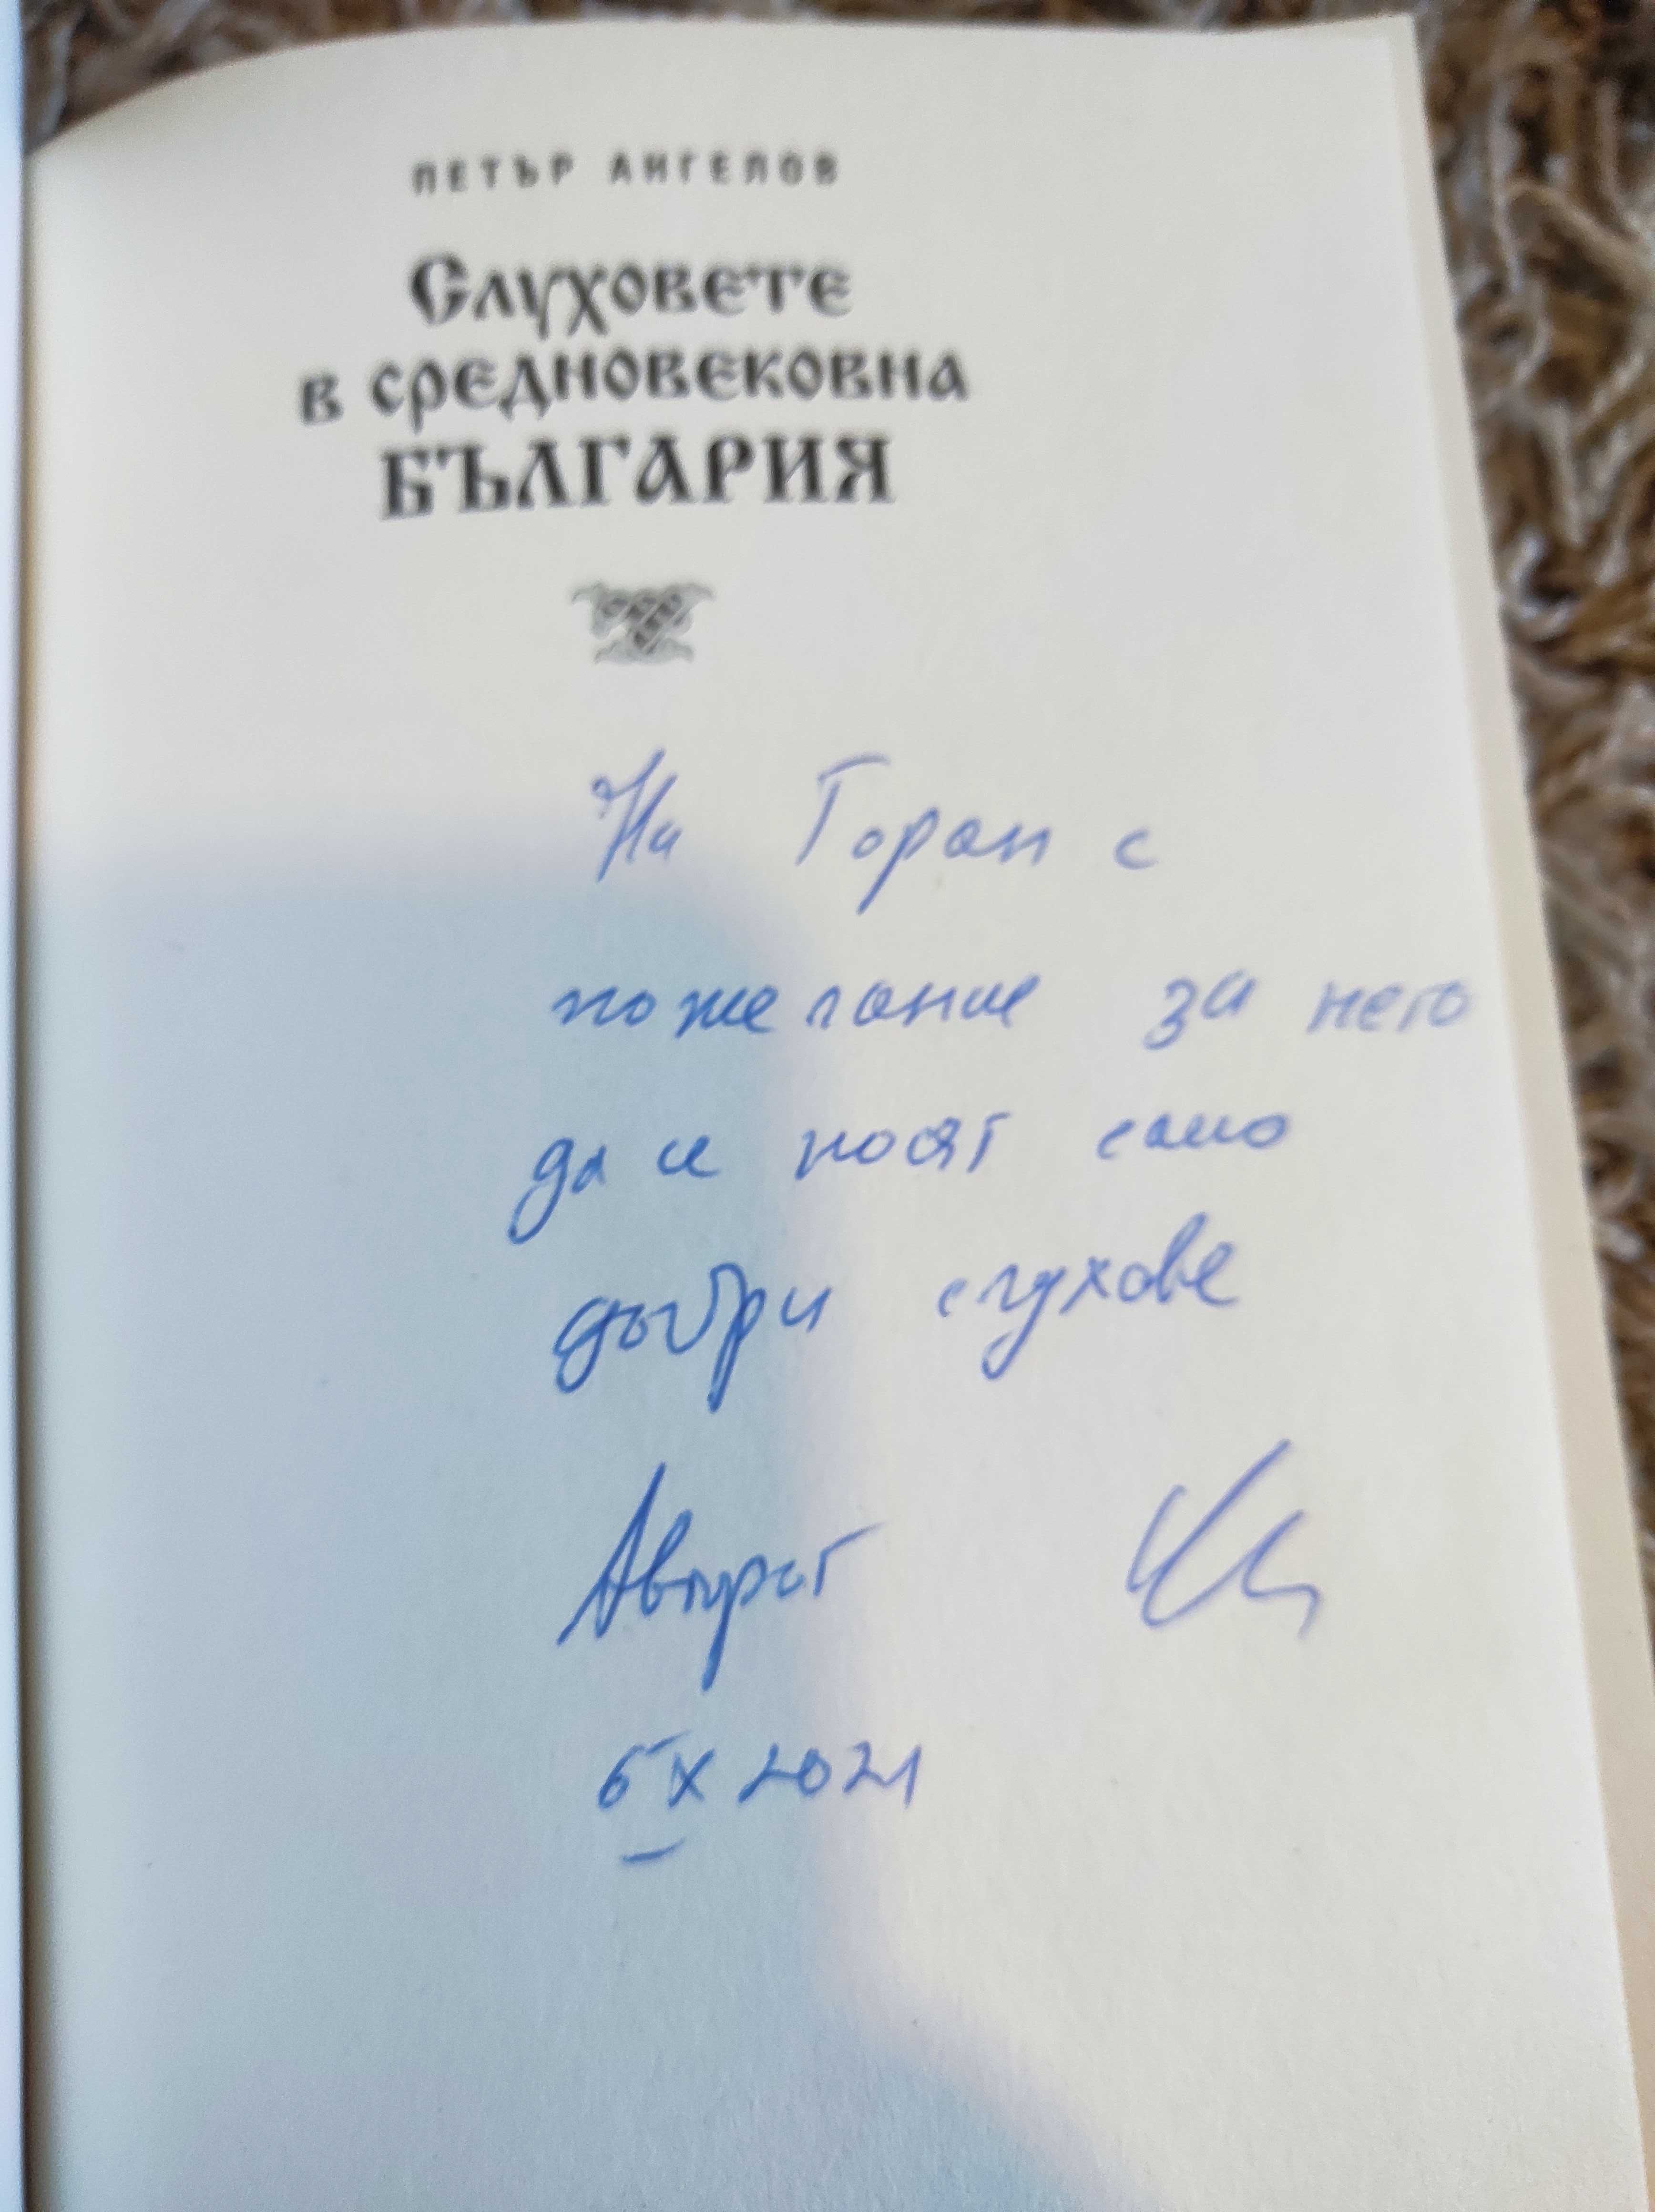 ПЕТЪР АНГЕЛОВ
Слуховете
в средновековна
БЪЛГАРИЯ
На Горан с
пожелание за него
да се носят само
добри слухове
Авторът
6 X 2021